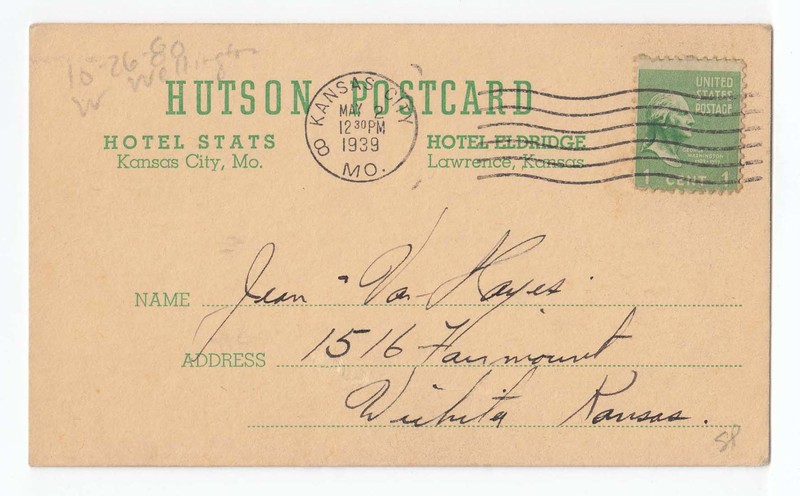 10-26-80
Wellington
W
HUTSON POSTCARD
HOTEL STATS
Kansas City, Mo.
HOTEL ELDRIDGE
Lawrence, Kansas
KANSAS CITY
MAY 2
12 30 PM
1939
MO.
8
UNITED
STATES
POSTAGE
WASHINGTON
1 CENT 1
NAME Jean Van Hayes.
ADDRESS 1516 Fairmount
Wichita Kansas.